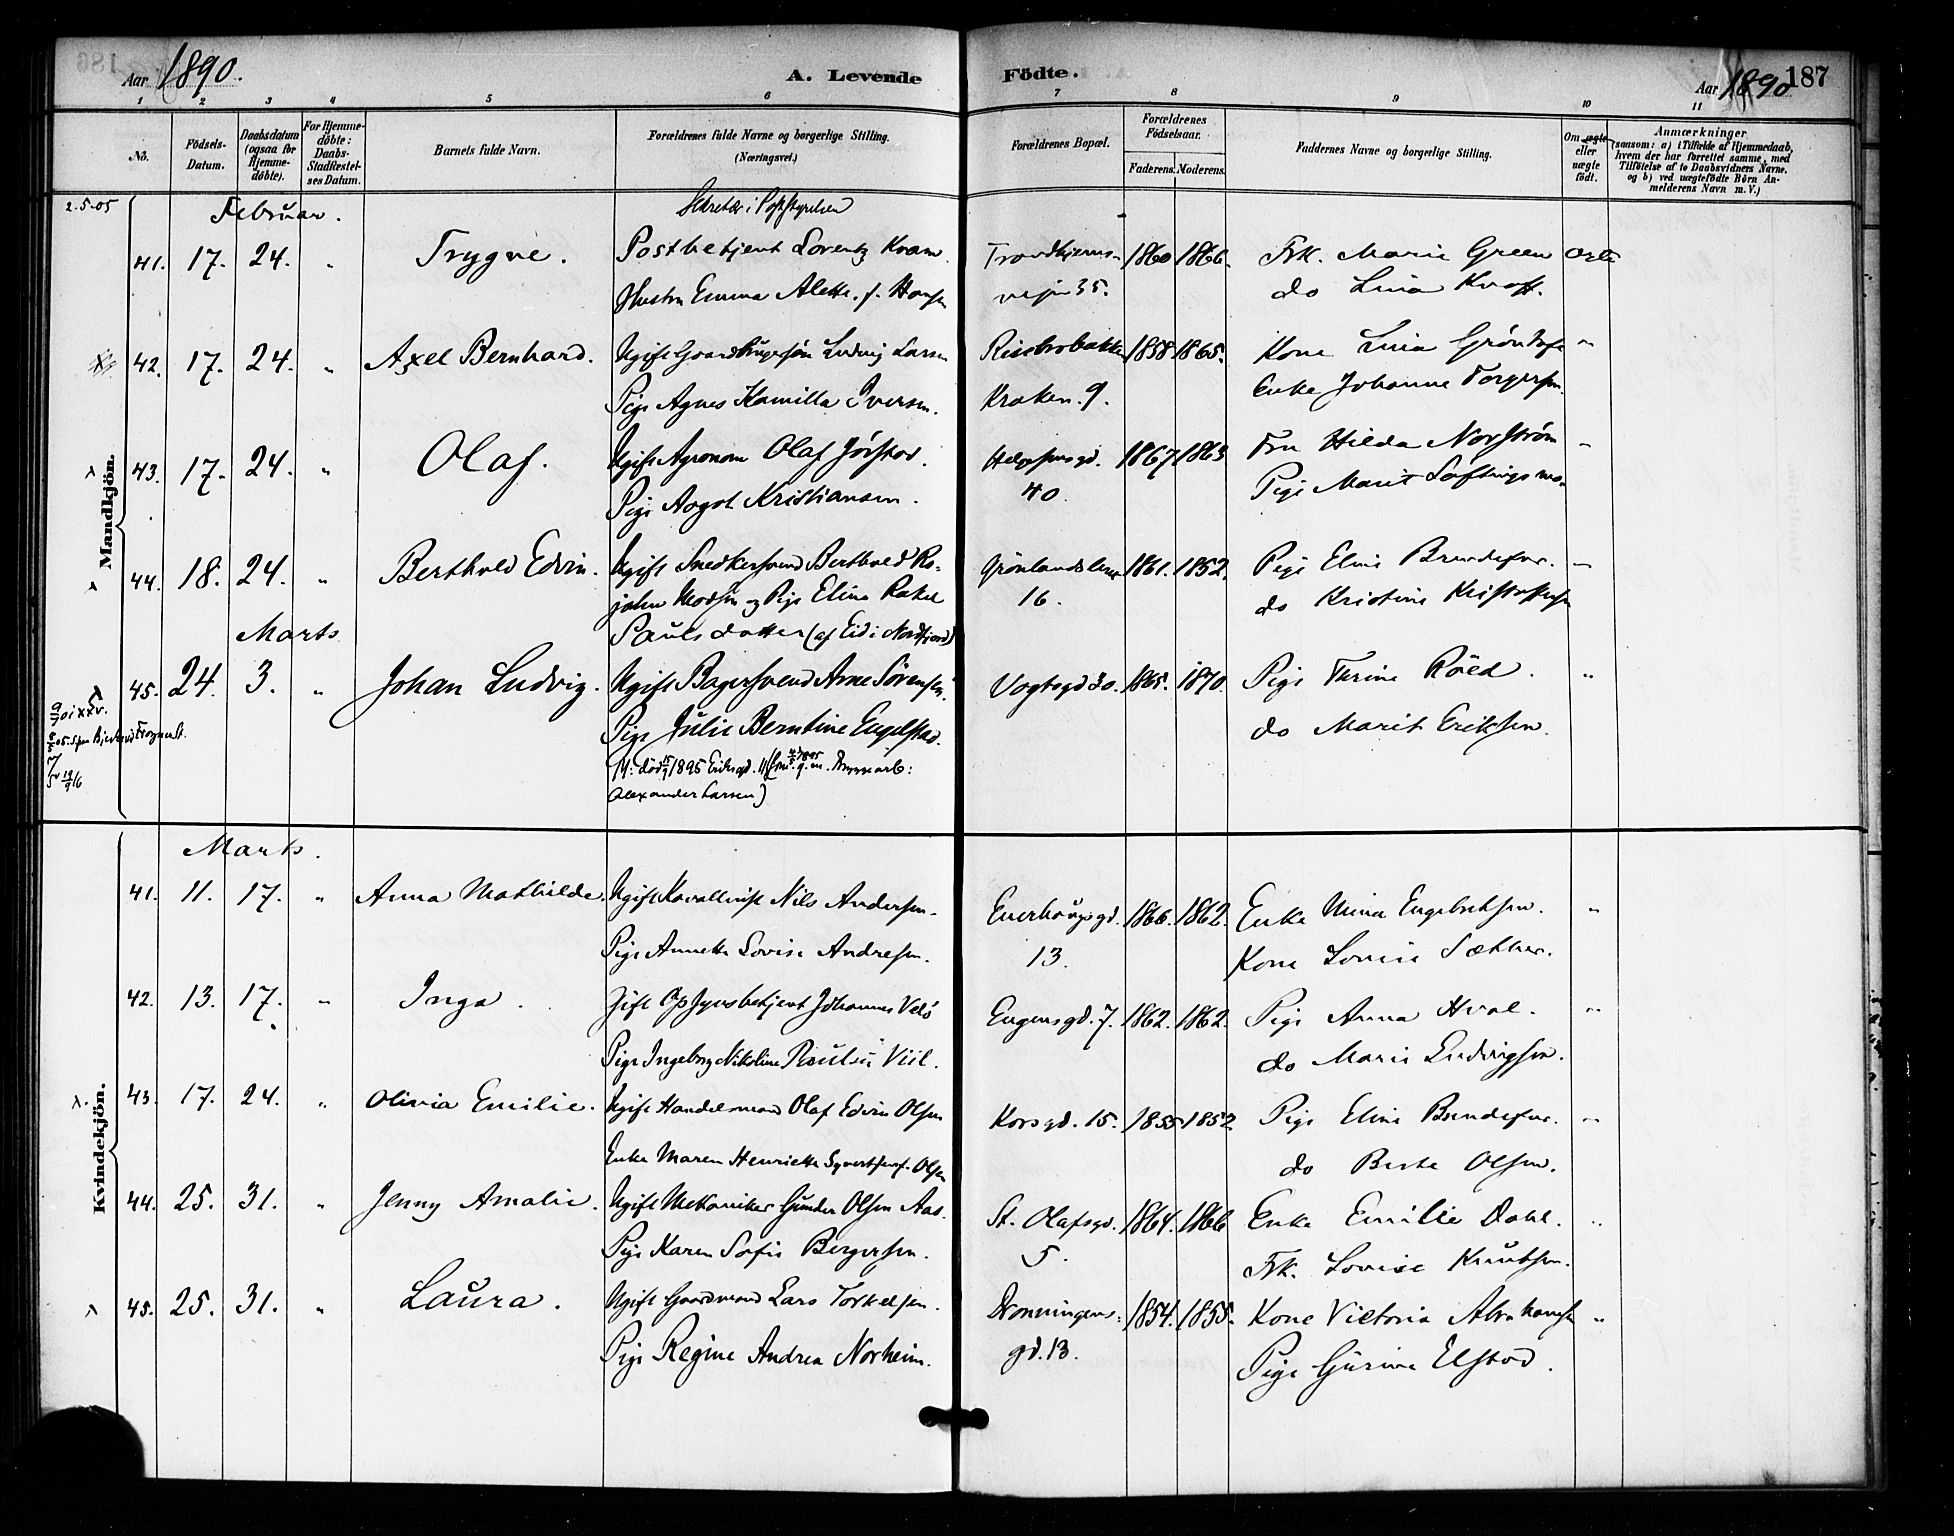 Aar 1890.
A. Levende Födte.
Aar 1890
187
1 2 3 4 5 6 7 8 9 10 11
No.
Födsels-Datum.
Daabsdatum (ogsaa for Hjemme-döbte).
For Hjemme-döbte: Daabs-Stadfæstel-ses Datum.
Barnets fulde Navn.
Forældrenes fulde Navne og borgerlige Stilling. (Næringsvei.)
Forældrenes Bopæl.
Forældrenes Födselsaar.
Faderens. Moderens.
Faddernes Navne og borgerlige Stilling.
Om ægte eller uægte födt.
Anmærkninger (saasom: a) i Tilfælde af Hjemmedaab, hvem der har forrettet samme, med Tilföielse af to Daabsvidners Navne. og b) ved uægtefödte Börn An-melderens Navn m. V.)
2.5.05
Februar.
Sekretær i Poststyrelsen
Mandkjön.
41. 17. 24. " Trygve. Postbetjent Lorentz Kvam Trondhjems- 1860 1866. Frk. Marie Green Ægte
Hustru Emma Alette f. Hansen veien 35. do Lina Kraft.
42. 17. 24. " Axel Bernhard. Ugift Gaardbrugersøn Ludvig Larsen Risebrobakken 1858. 1865. Kone Lina "
Pige Agnes Kamilla Iversen. Kroken. 9. Enke Johanne Torgersen.
43. 17. 24. " Olaf. Ugift Agronom Olaf Jörstad. Helgesensgd. 1867. 1863 Fru Hilda Norström "
Pige Aagot Kristiansen. 40. Pige Marit
44. 18. 24. " Berthold Edvin. Ugift Snedkersvend Berthold Ro- Grönlandsleret 1861. 1852. Pige Eline "
jahn Madsen og Pige Eline Rakel 16. do Kristine Kristoffersen
Marts
Paulsdatter (af Eid i Nordfjord)
45. 24. 3. " Johan Ludvig. Ugift Bagersvend Arne Sørensen. Vogtsgd 30. 1865. 1870. Pige Turine Röed. "
Pige Julie Berntine Engelstad. do Marit Eriksen.
Alexander Larsen)
Kvindekjön.
Marts.
41. 11. 17. " Anna Mathilde. Ugift Kavallerist Nils Andersen. Enerhaugsgd. 1866. 1862. Enke Mina Engebretsen. "
Pige Annette Lovise Andresen. 13. Kone Lovise Sæther.
42. 13. 17. " Inga. Gift Opsynsbetjent Johannes Velö Eugensgd. 7. 1862. 1862. Pige Anna Hval. "
Pige Ingeborg Nikoline Viil. do Marie Ludvigsen.
43. 17. 24. " Olivia Emilie. Ugift Handelsmand Olaf Edvin Olsen Korsgd. 15. 1855 1852. Pige Eline "
Enke Maren Henriette Syvertsen f. Olsen do Berte Olsen.
44. 25. 31. " Jenny Amalie. Ugift Mekaniker Gunder Olsen Aas. St. Olafsgd. 1864. 1866 Enke Emilie Dahl. "
Pige Karen Sofie Bergersen. 5. Frk. Lovise Knutsen.
45. 25. 31. " Laura. Ugift Gaardmand Lars Torkelsen. Dronningens- 1854. 1855. Kone Victoria Abrahamsen "
Pige Regine Andrea Norheim. gd. 13. Pige Gurine Elstad.